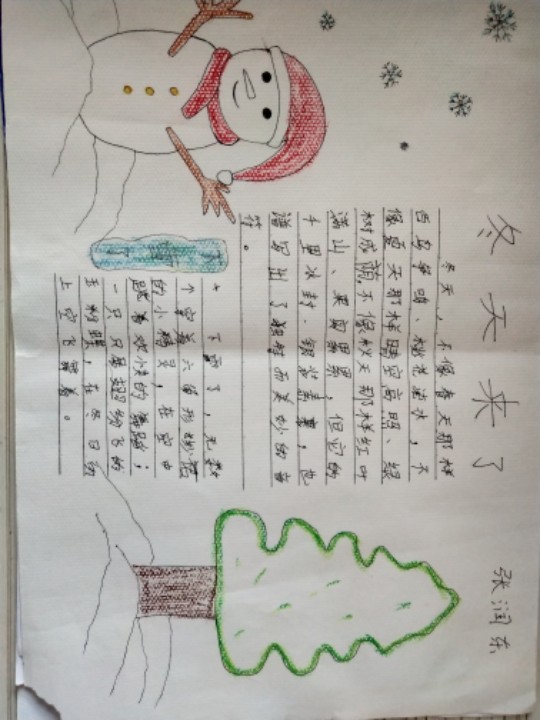 冬天来了
张润东
冬天，不像春天那样
百鸟争鸣、桃花流水，不
像夏天那样晴空高照、绿
树成荫，不像秋天那样红叶
满山、果实累累，但它的
千里冰封、银装素裹，也
谱写出了独特而美妙的音
符。
下雪了，无数
个穿着六角形纱裙
的小精灵，在空中
跳着欢快的舞蹈；
一只只翩翩纷飞的
玉蝴蝶，在冬日的
上空飞舞着。